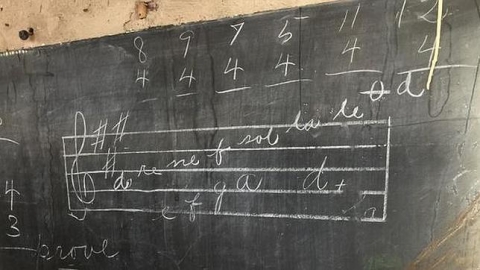 8 9 7 5 11 12
4 4 4 4 4 4
d
sol la te
do re me f
e f g a d
4
3
prove